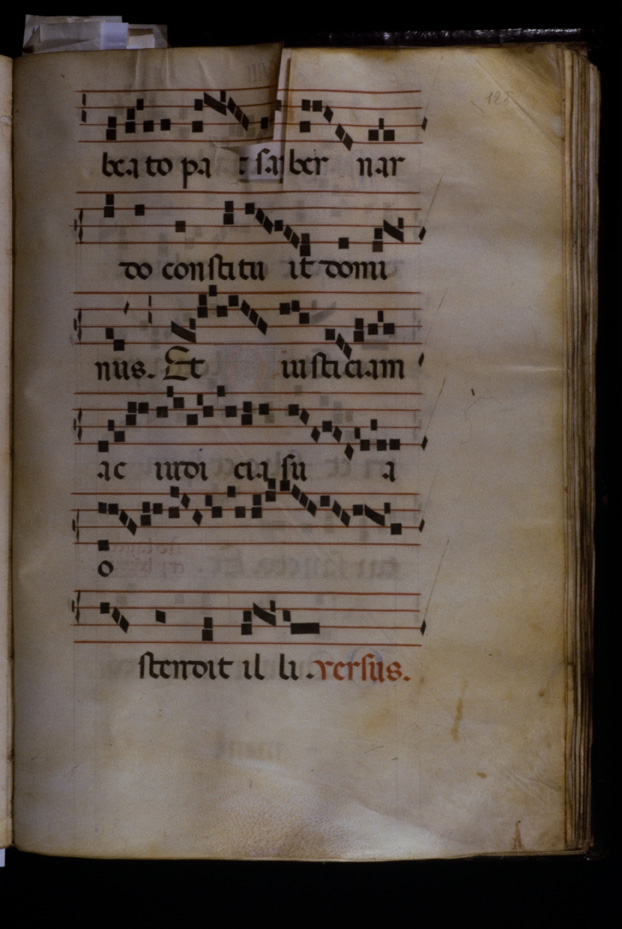 128
bea to pa t sa ber nar
do constitu it domi
nus. Et iusticiam
ac iudi cia su a
o
stendit il li. versus.